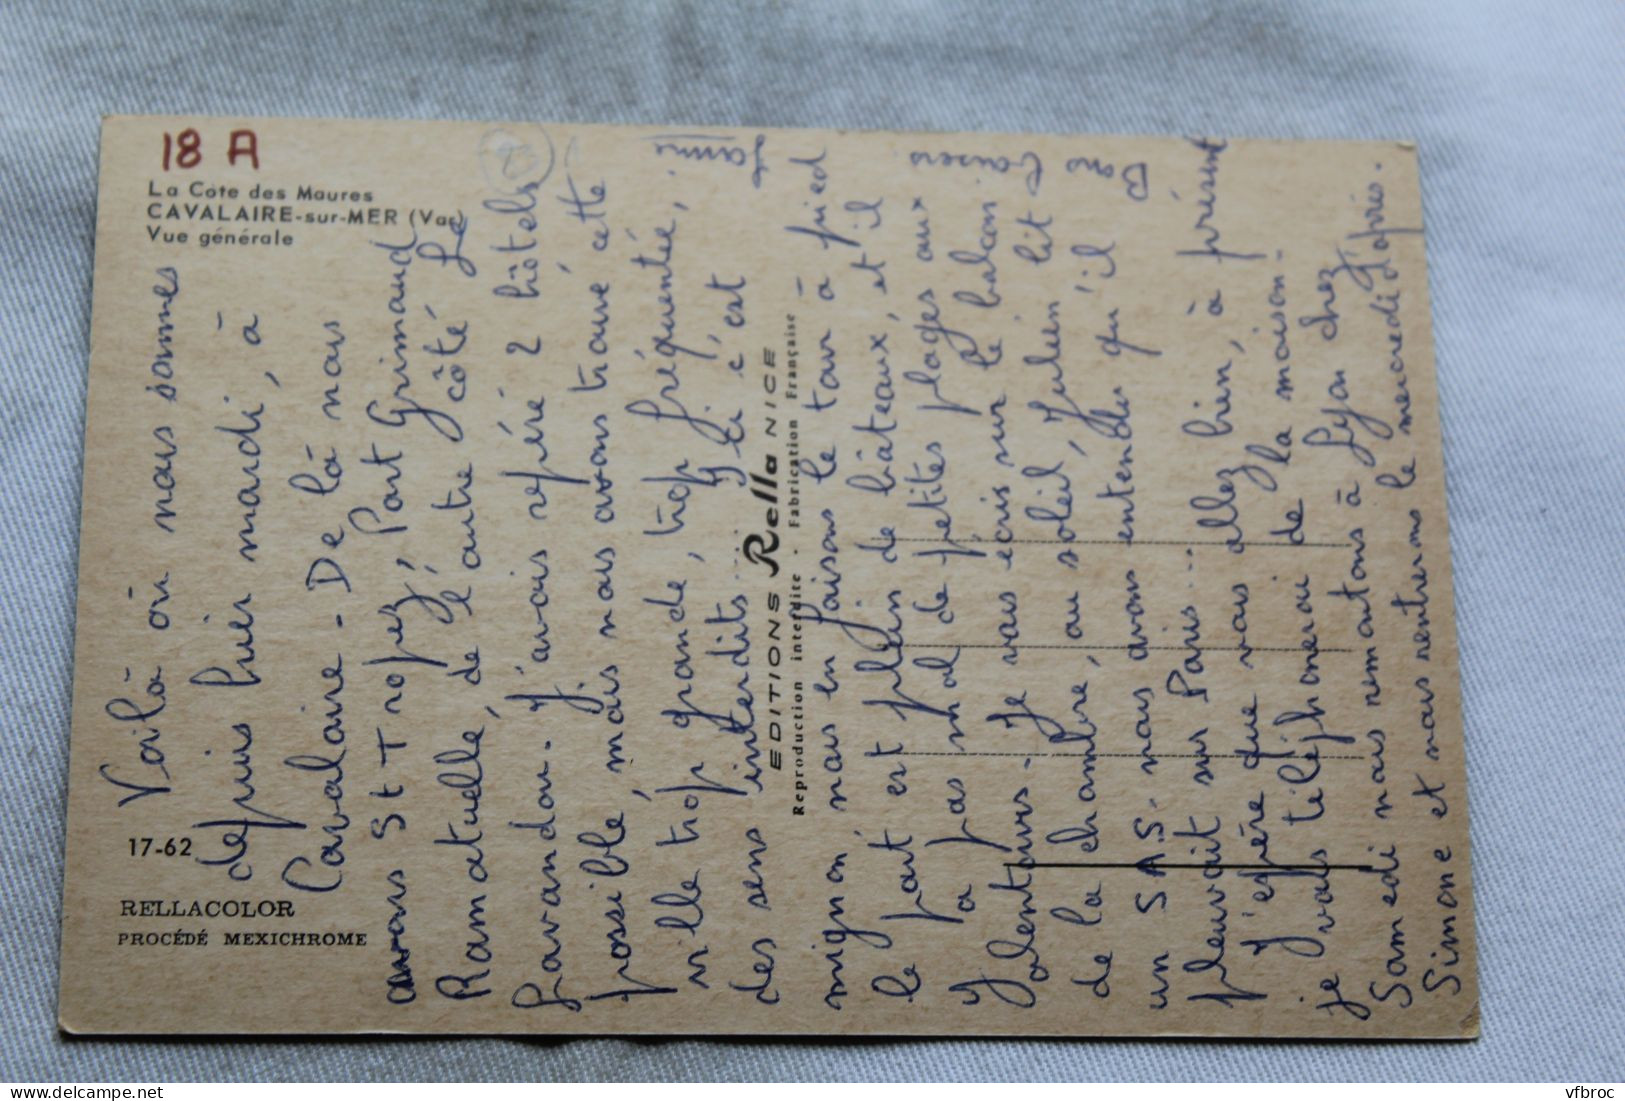 18 A
La Côte des Maures
CAVALAIRE-sur-MER (Var)
Vue générale
17-62
RELLACOLOR
PROCÉDÉ MEXICHROME
EDITIONS Rella NICE
Reproduction interdite - Fabrication Française
Voilà où nous sommes
depuis hier mardi, à
Cavalaire - De là nous
avons St Tropez, Port Grimaud
Ramatuelle, de l'autre côté Le
Lavandou - J'avais repéré 2 hôtels
possible, mais nous avons trouvé cette
ville trop grande, trop fréquentée,
des sens interdits... Ici c'est
mignon nous en faisons le tour à pied
le port est plein de bâteaux, et il
y a pas mal de petites plages aux
alentours - Je vous écris sur le balcon
de la chambre, au soleil, Julien lit
un S.A.S. nous avons entendu qu'il
pleuvait sur Paris...
J'espère que vous allez bien, à présent
je vous téléphonerai de la maison -
Samedi nous remontons à Lyon chez
Simone et nous rentrons le mercredi d'après.
Baisers